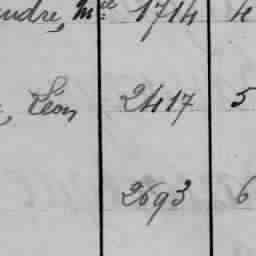 endre, Mel 1714 4
, Léon 2417 5
2693 6